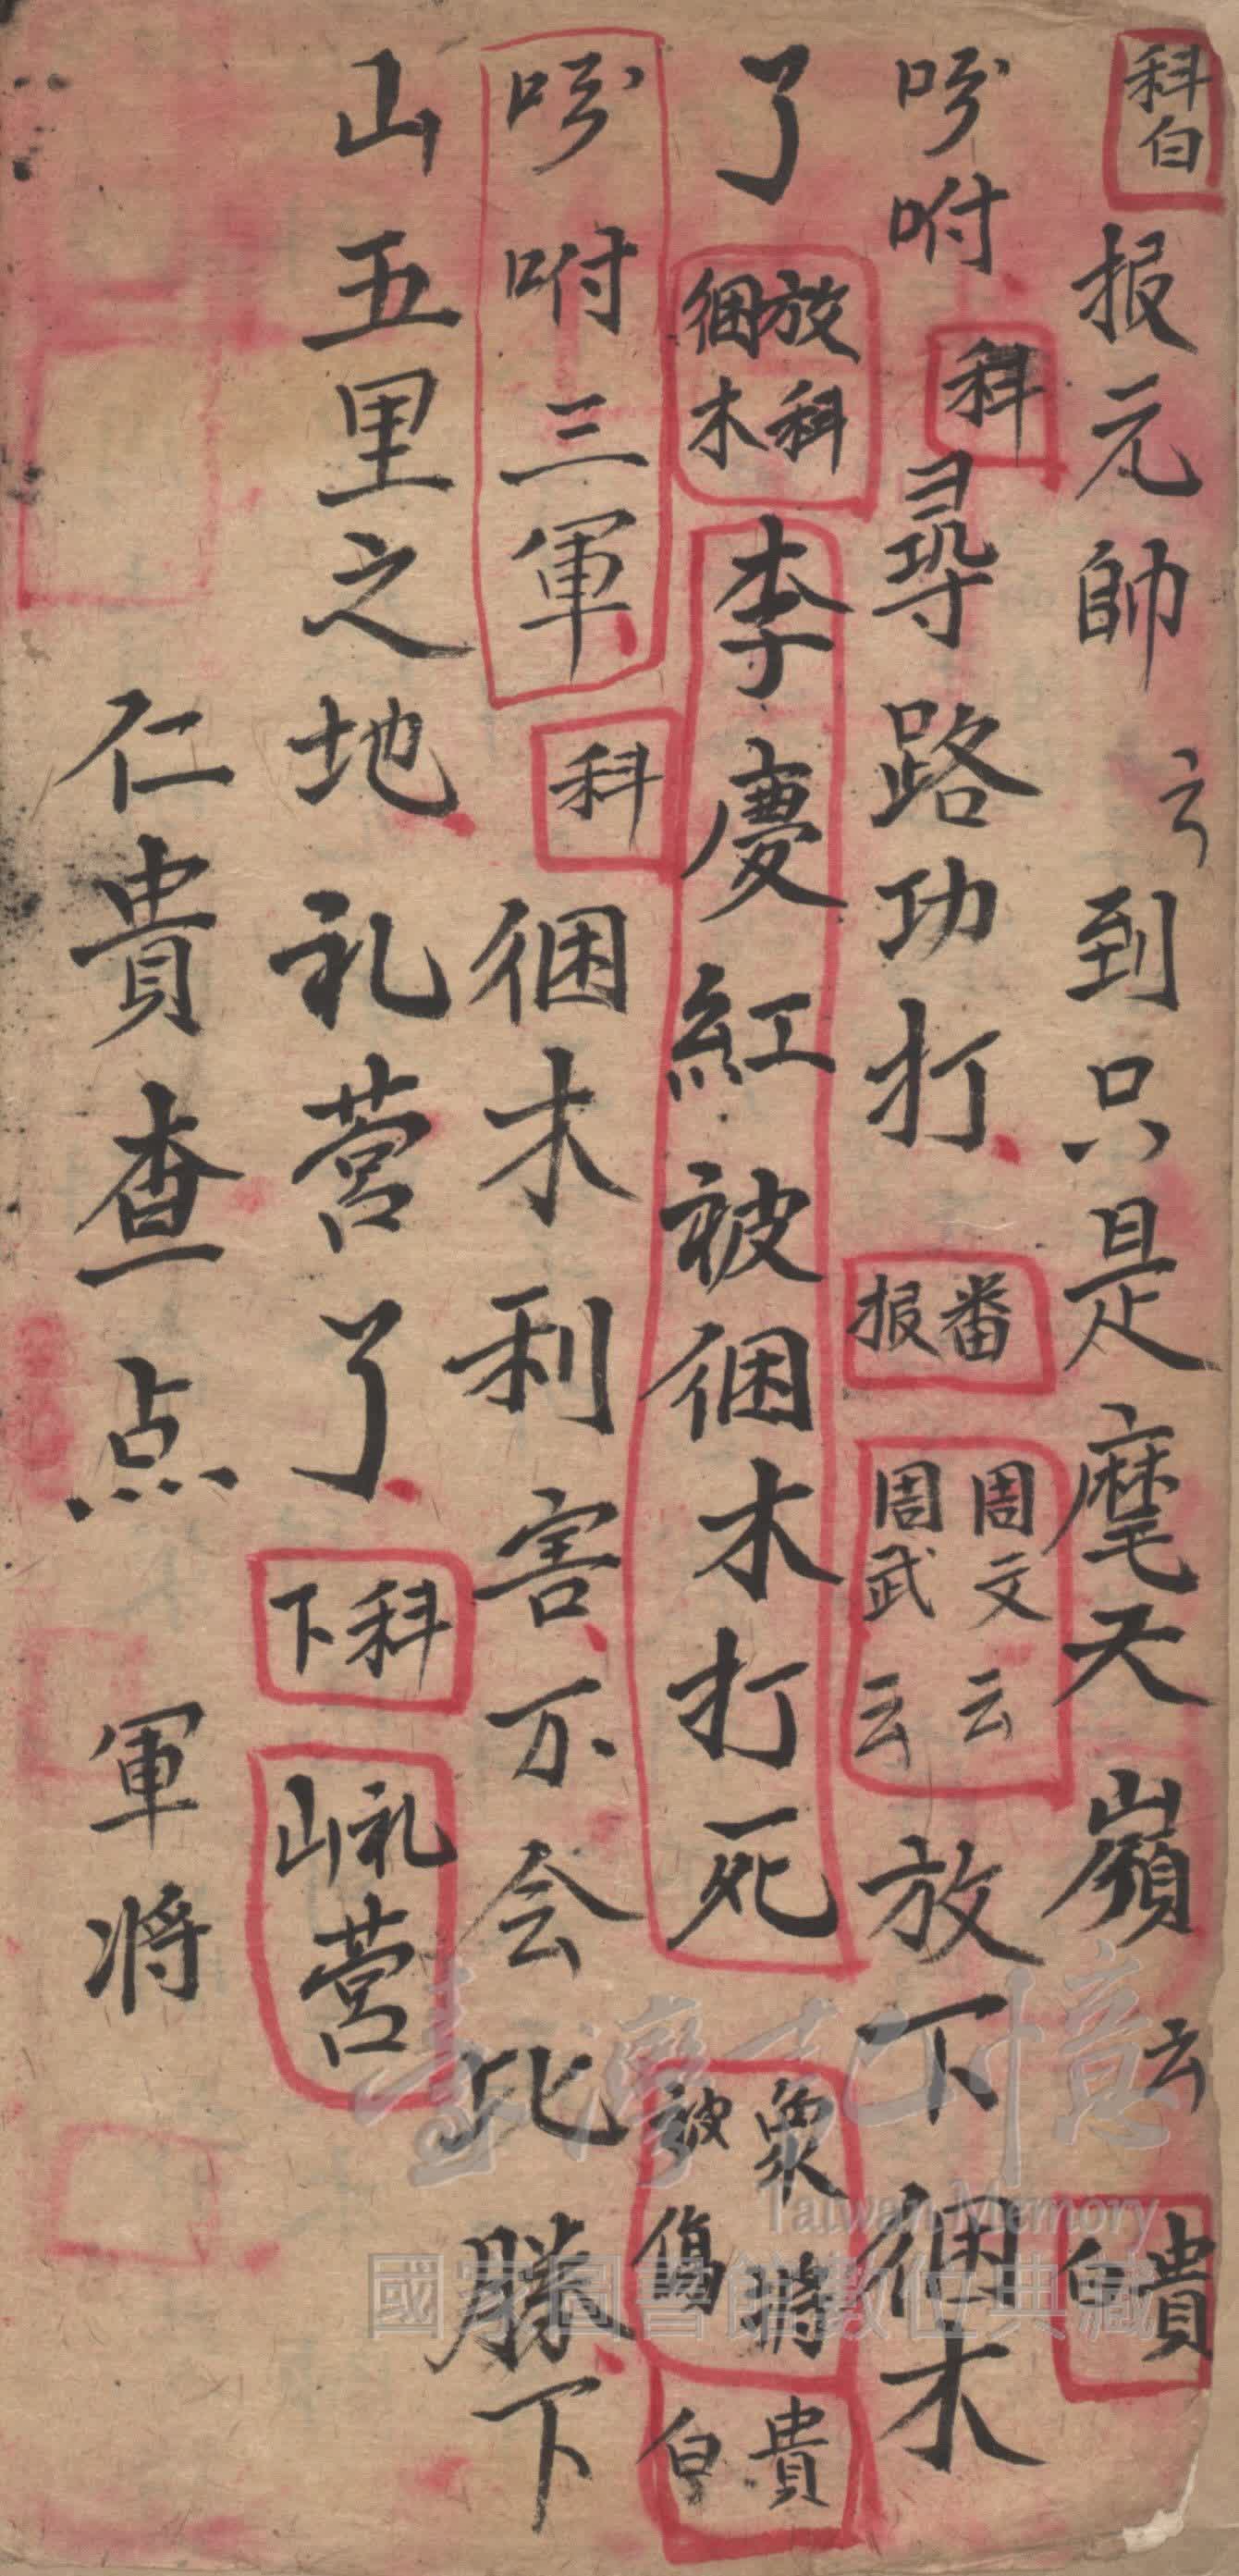 科白 报元帥 云 到只是麾天嶺 云 貴白
吩咐 科 尋路功打 番报 周文 周武 云云 放下捆木
了 放捆木科 李慶紅被捆木打死 衆將被傷 貴白
吩咐三軍 科 捆木利害不会此勝下
山五里之地礼营了 科下 礼营山
仁貴查点 軍将
臺灣記憶
Taiwan Memory
國家圖書館數位典藏